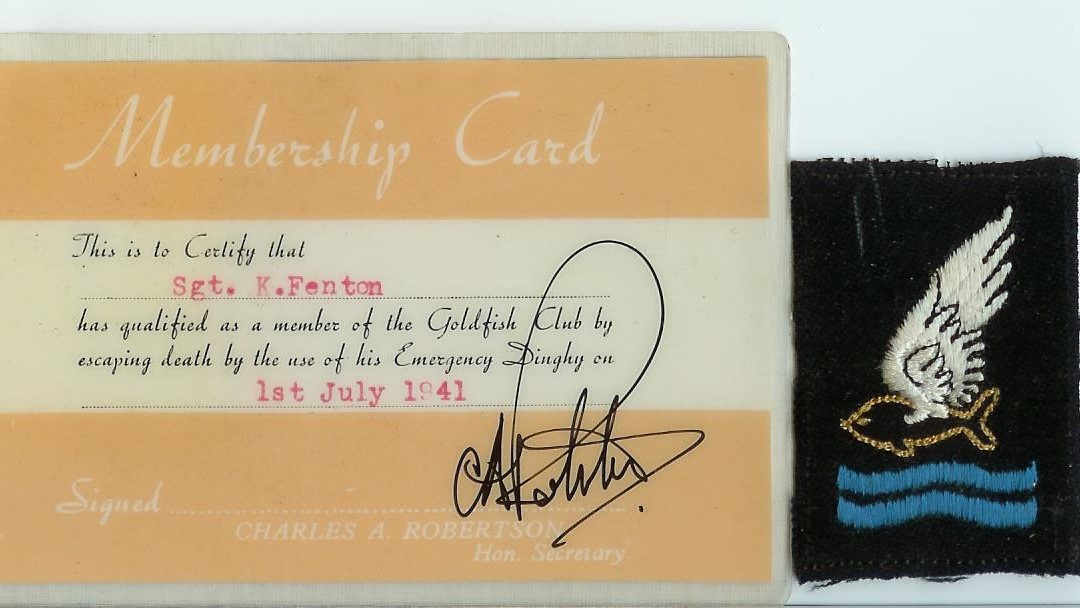 Membership Card
This is to Certify that
Sgt. K.Fenton
has qualified as a member of the Goldfish Club by
escaping death by the use of his Emergency Dinghy on
1st July 1941
Signed
CHARLES A. ROBERTSON
Hon. Secretary.